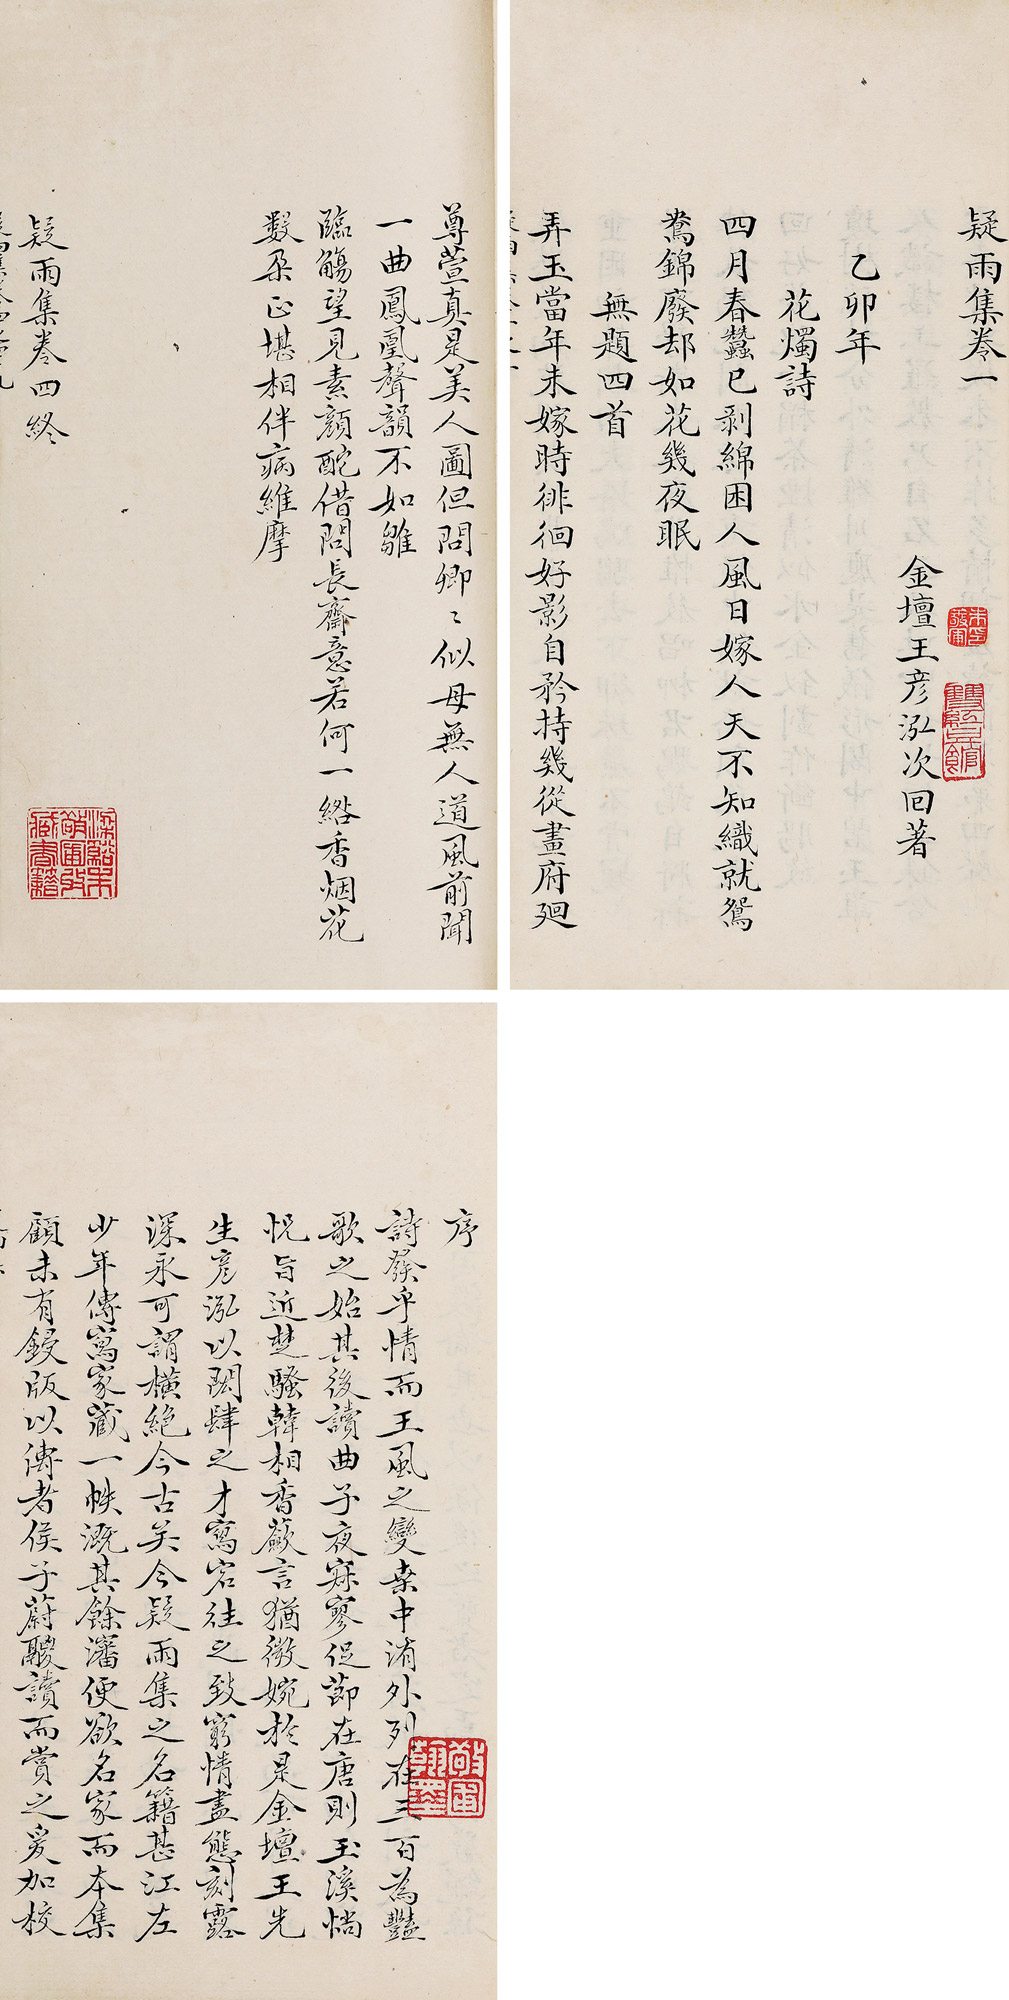 疑雨集卷一
金壇王彦泓次回著
乙卯年
花燭詩
四月春蠶已剥綿困人風日嫁人天不知織就鴛
鴦錦廢却如花幾夜眠
無題四首
弄玉當年未嫁時徘徊好影自矜持幾從畫府廻
尊萱真是美人圖但問卿〻似母無人道風前聞
一曲鳳凰聲韻不如雛
臨觴望見素顔酡借問長齋意若何一綹香烟花
數朶正堪相伴病維摩
疑雨集卷四終
序
詩發乎情而王風之變桒中洧外列在三百為豔
歌之始其後讀曲子夜寐寥促節在唐則玉溪惝
怳旨近楚騷韓相香蘞言猶微婉於是金壇王先
生彥泓以閎肆之才寫宕往之致窮情盡態刻露
深永可謂横絶今古矣今疑雨集之名籍甚江左
少年傳寫家藏一帙溉其餘瀋便欲名家而本集
顧未有鋟版以傳者侯子蔚㲄讀而賞之爰加校